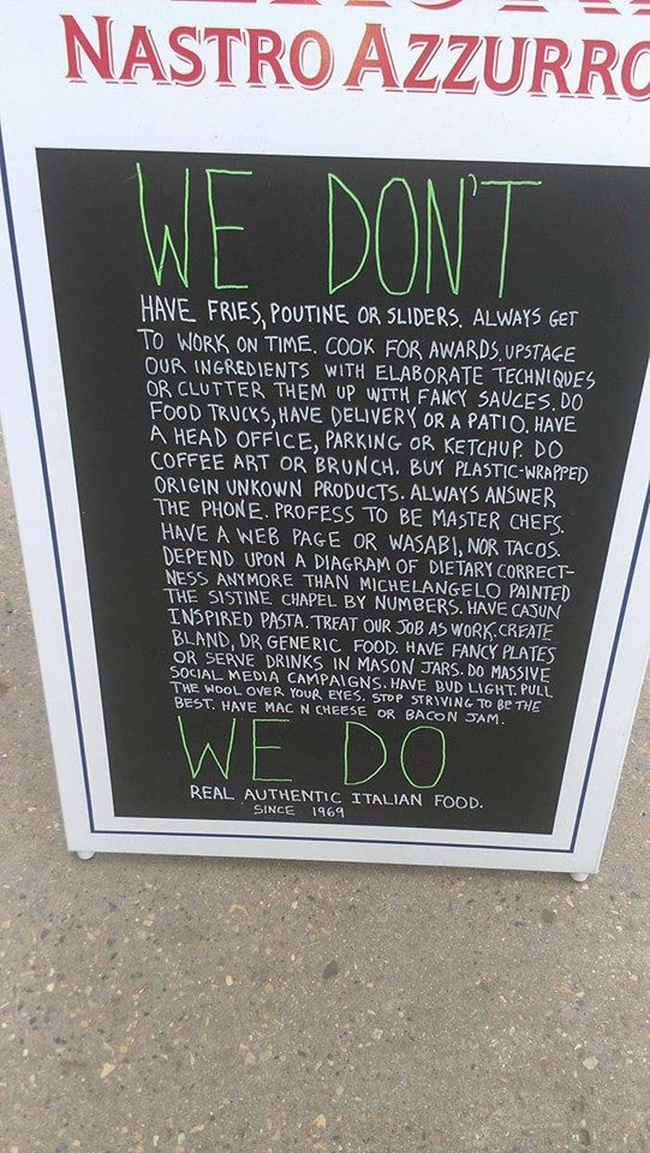 NASTRO AZZURRO
WE DON'T
HAVE FRIES, POUTINE OR SLIDERS. ALWAYS GET
TO WORK ON TIME. COOK FOR AWARDS, UPSTAGE
OUR INGREDIENTS WITH ELABORATE TECHNIQUES
OR CLUTTER THEM UP WITH FANCY SAUCES. DO
FOOD TRUCKS, HAVE DELIVERY OR A PATIO. HAVE
A HEAD OFFICE, PARKING OR KETCHUP. DO
COFFEE ART OR BRUNCH. BUY PLASTIC-WRAPPED
ORIGIN UNKOWN PRODUCTS. ALWAYS ANSWER
THE PHONE. PROFESS TO BE MASTER CHEFS.
HAVE A WEB PAGE OR WASABI, NOR TACOS.
DEPEND UPON A DIAGRAM OF DIETARY CORRECT-
NESS ANYMORE THAN MICHELANGELO PAINTED
THE SISTINE CHAPEL BY NUMBERS. HAVE CAJUN
INSPIRED PASTA. TREAT OUR JOB AS WORK. CREATE
BLAND, OR GENERIC FOOD. HAVE FANCY PLATES
OR SERVE DRINKS IN MASON JARS. DO MASSIVE
SOCIAL MEDIA CAMPAIGNS. HAVE BUD LIGHT. PULL
THE WOOL OVER YOUR EYES. STOP STRIVING TO BE THE
BEST. HAVE MAC N CHEESE OR BACON JAM.
WE DO
REAL AUTHENTIC ITALIAN FOOD.
SINCE 1969